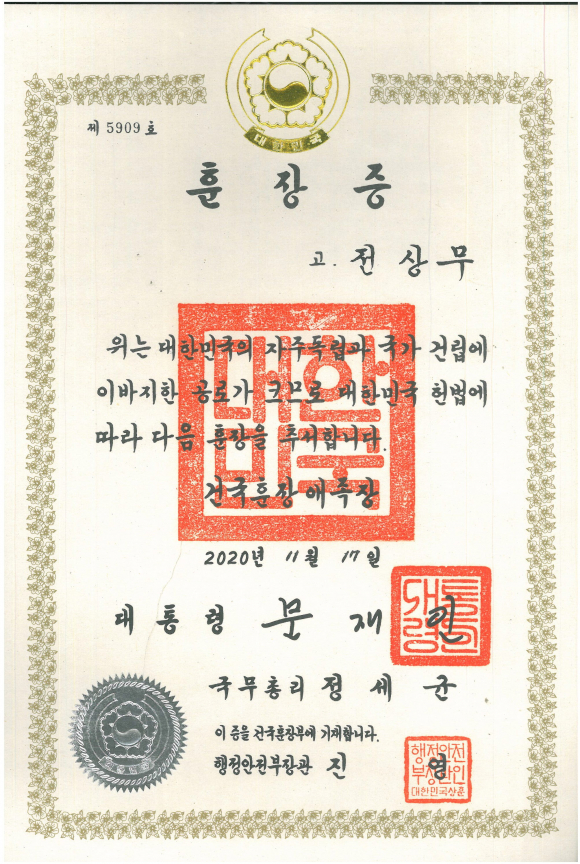 대한민국
제 5909 호
훈장증
고. 전상무
위는 대한민국의 자주독립과 국가 건립에
이바지한 공로가 크므로 대한민국 헌법에
따라 다음 훈장을 추서합니다.
건국훈장 애족장
대한
민국
2020년 11월 17일
대통령 문재인
대통
령인
국무총리 정세균
이 증을 건국훈장부에 기재합니다.
행정안전부장관 진영
행정안전
부장관인
대한민국상훈
대한민국